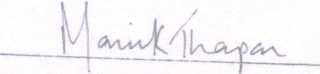 Manik Thapar